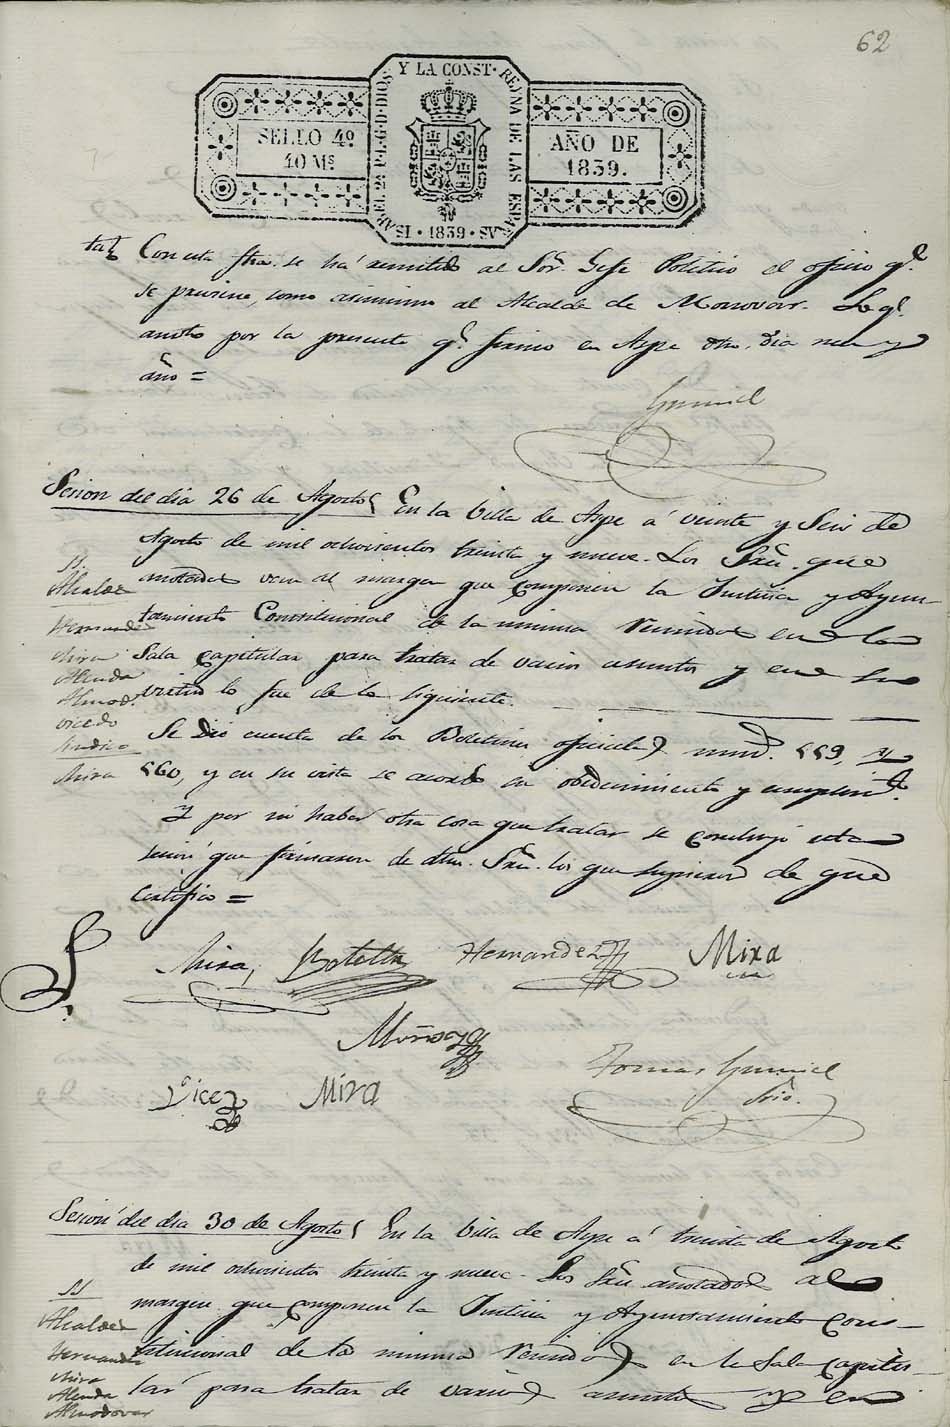 62
ISABEL 2ª P.L.G.D.DIOS Y LA CONST. REINA DE LAS ESPAÑAS
1839
SELLO 4º
40 Ms
AÑO DE
1839.
Con esta fha. se há remitido al Sor. Gefe Politico el oficio q.
se previene, como asimismo al Alcalde de Monovar. Lo q.
anoto por la presente q. firmo en Aspe dho. dia mes y
año =
Sesion del dia 26 de Agosto En la Villa de Aspe á veinte y seis de
Agosto de mil ochocientos treinta y nueve. Los Sres. que
anotados van al margen que componen la Justicia y Ayun-
tamiento Constitucional de la misma reunidos en la
Sala capitular para tratar de varios asuntos y en su
virtud lo fue de lo siguiente.
SS.
Alcalde
Hernandez
Mira
Almod.
Vicedo
Sindico
Mira
Se dió cuenta de los Boletines oficiales num. 559, y
560, y en su vista se acordó su obedecimiento y cumplim.
Y por no haber otra cosa que tratar se concluyó esta
sesion que firmaron de dhos. Sres. los que supieron de que
Certifico =
Mira,
Botella
Hernandez
Mira
Muñoz
Tomas
Srio.
Mira
Sesion del dia 30 de Agosto En la Villa de Aspe á treinta de Agosto
de mil ochocientos treinta y nueve. Los Sres. anotados al
margen que componen la Justicia y Ayuntamiento Cons-
titucional de la misma reunidos en la Sala capitu-
lar para tratar de varios asuntos y en
SS
Alcalde
Hernandez
Mira
Almodovar